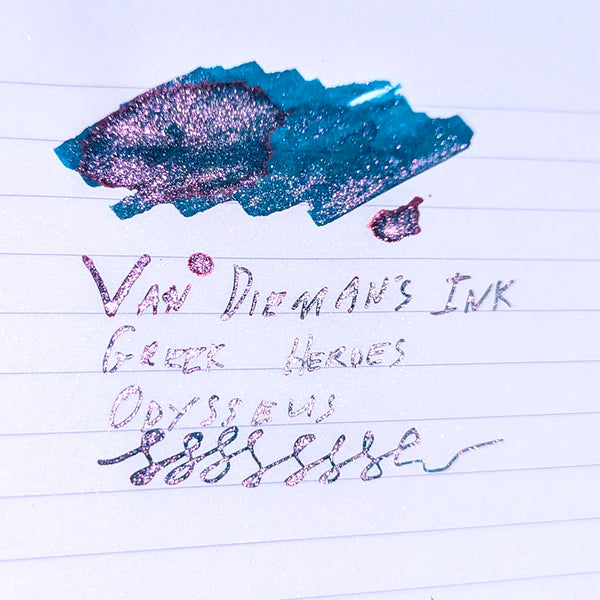 VAN DIEMAN'S INK
GREEK HEROES
ODYSSEUS